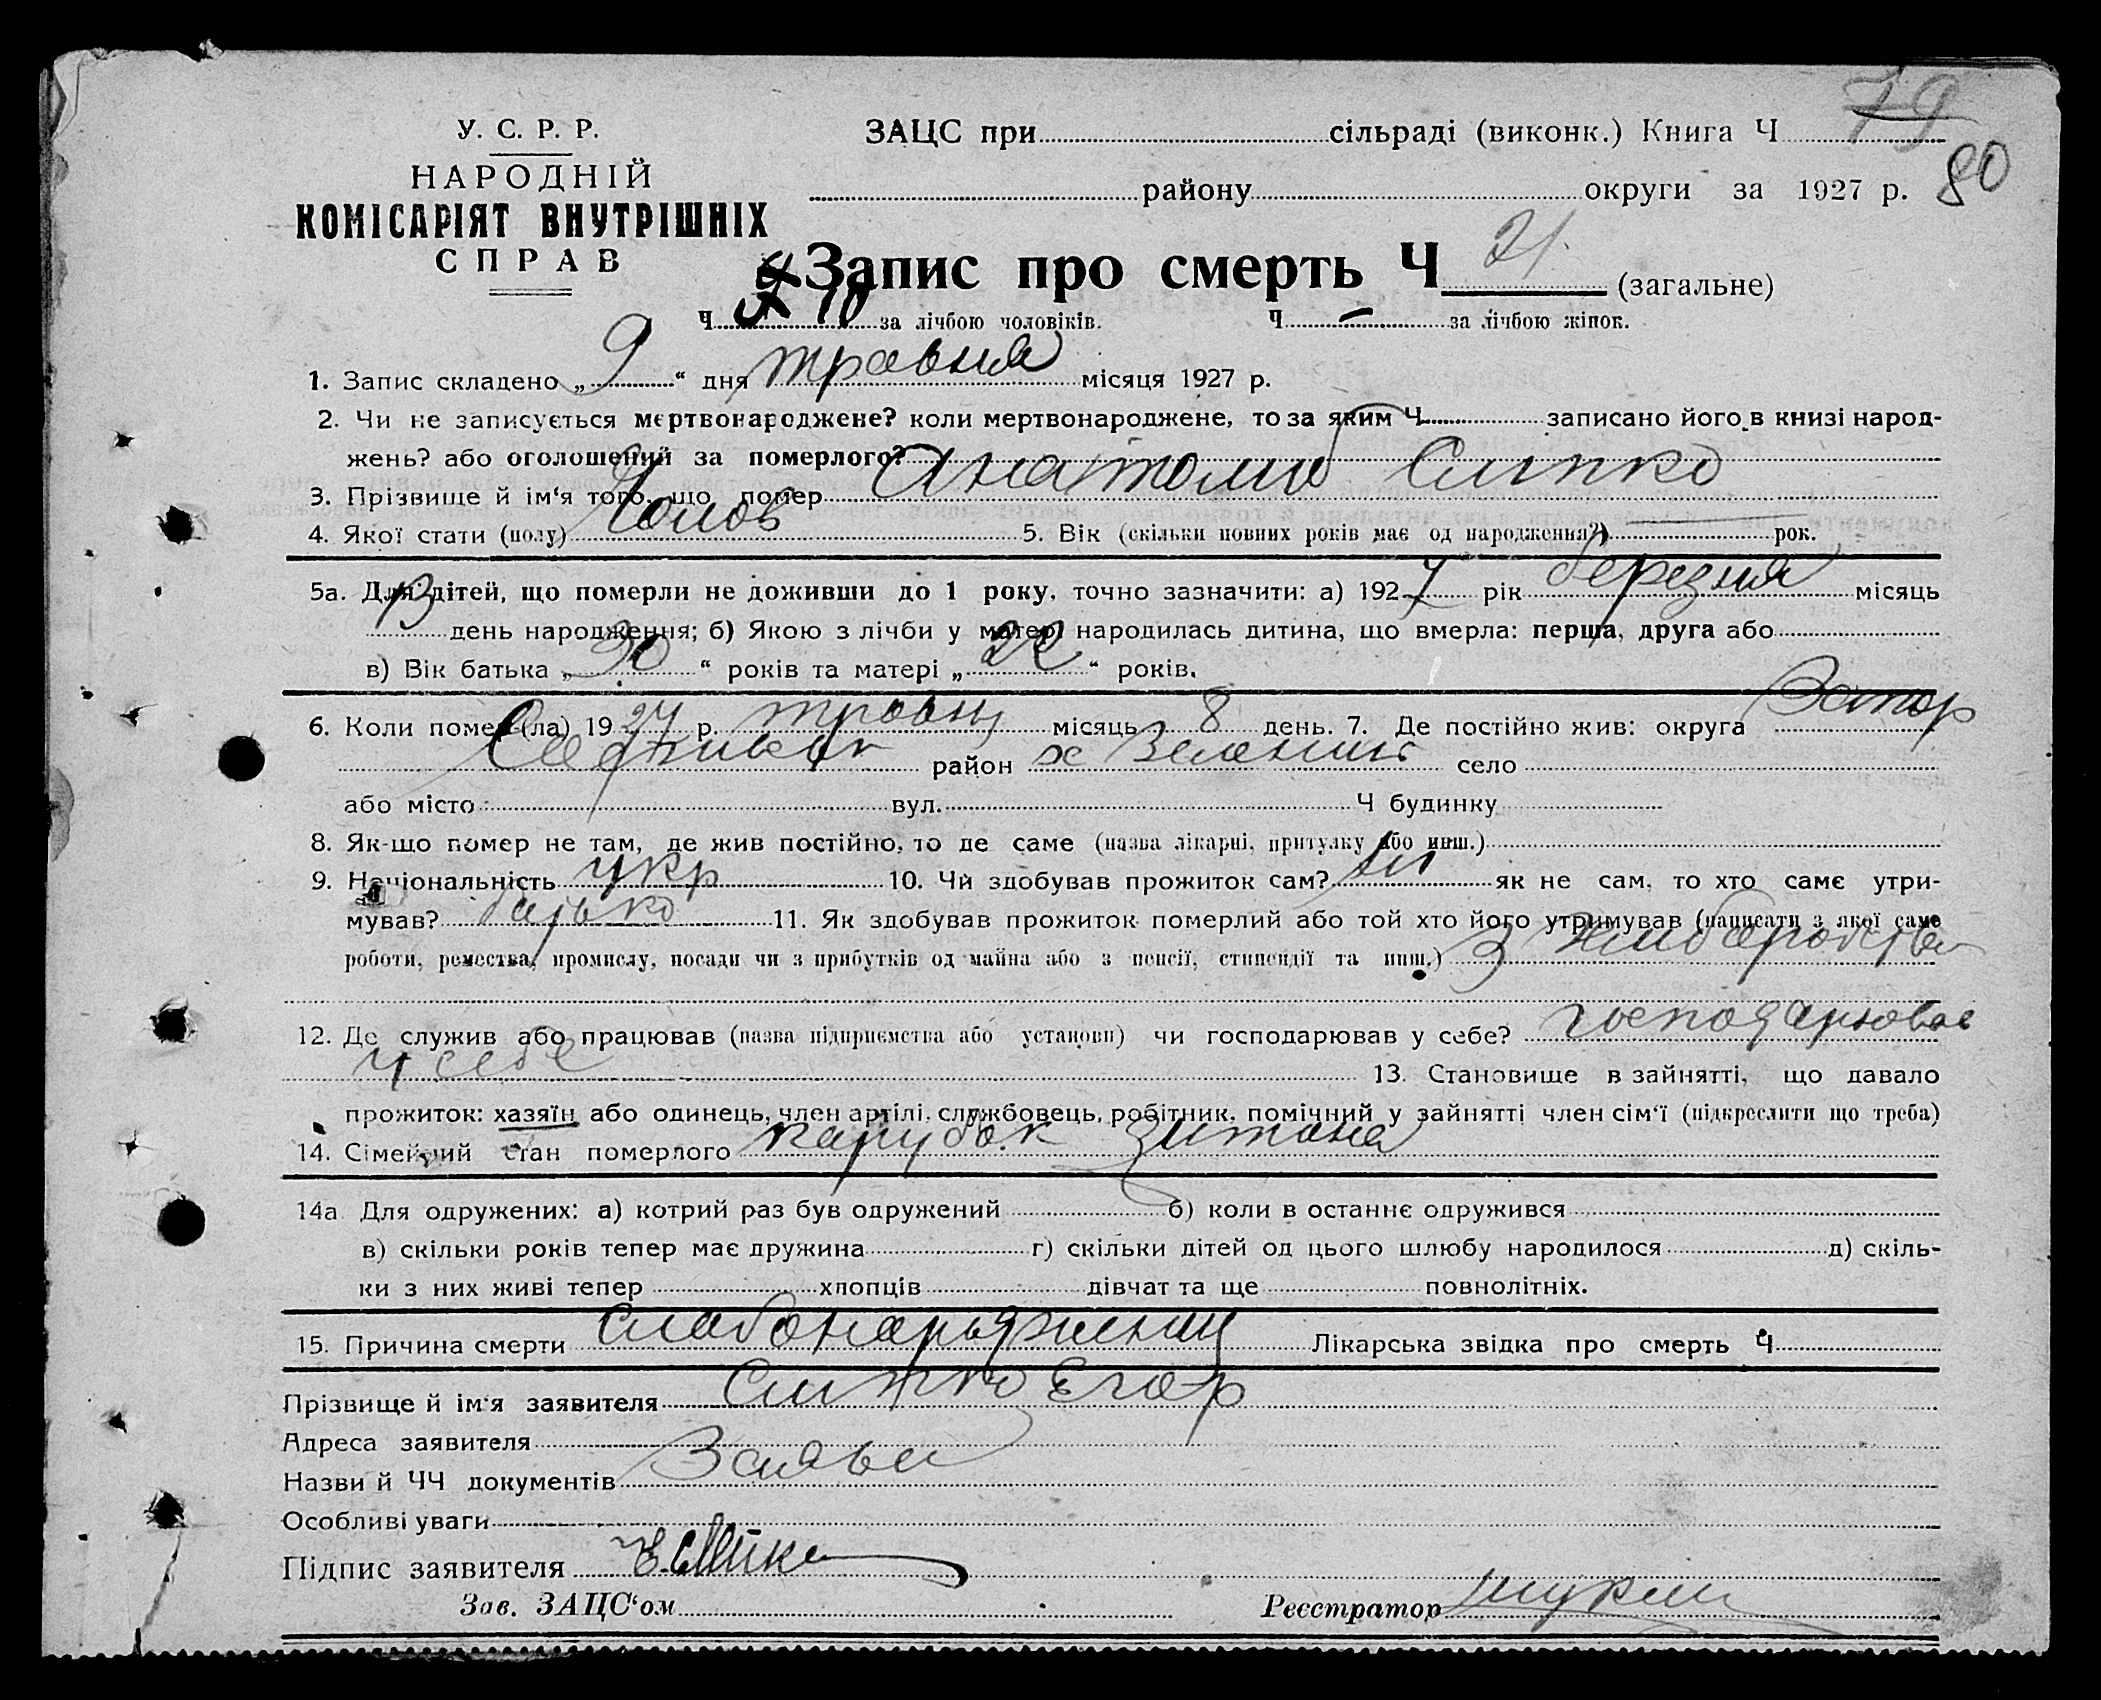 79
80
У. С. Р. Р.
НАРОДНІЙ
КОМІСАРІЯТ ВНУТРІШНІХ
СПРАВ
ЗАЦС при сільраді (виконк.) Книга Ч
району округи за 1927 р.
Запис про смерть Ч 21 (загальне)
Ч 10 за лічбою чоловіків. Ч — за лічбою жінок.
1. Запис складено „ 9 “ дня травня місяця 1927 р.
2. Чи не записується мертвонароджене? коли мертвонароджене, то за яким Ч записано його в книзі народ-
жень? або оголошений за померлого?
3. Прізвище й ім‘я того, що помер Анатолий
4. Якої стати (полу) Чолов 5. Вік (скільки повних років має од народження?) — рок.
5а. Для дітей, що померли не доживши до 1 року, точно зазначити: а) 1927 рік березня місяць
13 день народження; б) Якою з лічби у матері народилась дитина, що вмерла: перша, друга або
в) Вік батька „ 30 “ років та матері „ “ років.
6. Коли помер (ла) 1927 р. травня місяць 8 день. 7. Де постійно жив: округа Запор
район х село
або місто вул. Ч будинку
8. Як-що помер не там, де жив постійно, то де саме (назва лікарні, притулку або инш.)
9. Національність укр 10. Чи здобував прожиток сам? ні як не сам, то хто саме утри-
мував? батько 11. Як здобував прожиток померлий або той хто його утримував (написати з якої саме
роботи, ремества, промислу, посади чи з прибутків од майна або з пенсії, стипендії та инш.) З хліборобства
12. Де служив або працював (назва підприємства або установи) чи господарював у себе? господарював
у себе 13. Становище в зайнятті, що давало
прожиток: хазяїн або одинець, член артілі, службовець, робітник, помічний у зайнятті член сім‘ї (підкреслити що треба)
14. Сімейний стан померлого парубок
14а Для одружених: а) котрий раз був одружений б) коли в останнє одружився
в) скільки років тепер має дружина г) скільки дітей од цього шлюбу народилося д) скіль-
ки з них живі тепер хлопців дівчат та ще повнолітніх.
15. Причина смерти Лікарська звідка про смерть Ч
Прізвище й ім‘я заявителя Егор
Адреса заявителя
Назви й ЧЧ документів
Особливі уваги
Підпис заявителя
Зав. ЗАЦС‘ом Реєстратор